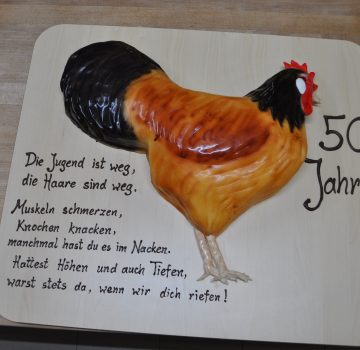 50
Jahr
Die Jugend ist weg,
die Haare sind weg.
Muskeln schmerzen,
Knochen knacken,
manchmal hast du es im Nacken.
Hattest Höhen und auch Tiefen,
warst stets da, wenn wir dich riefen!